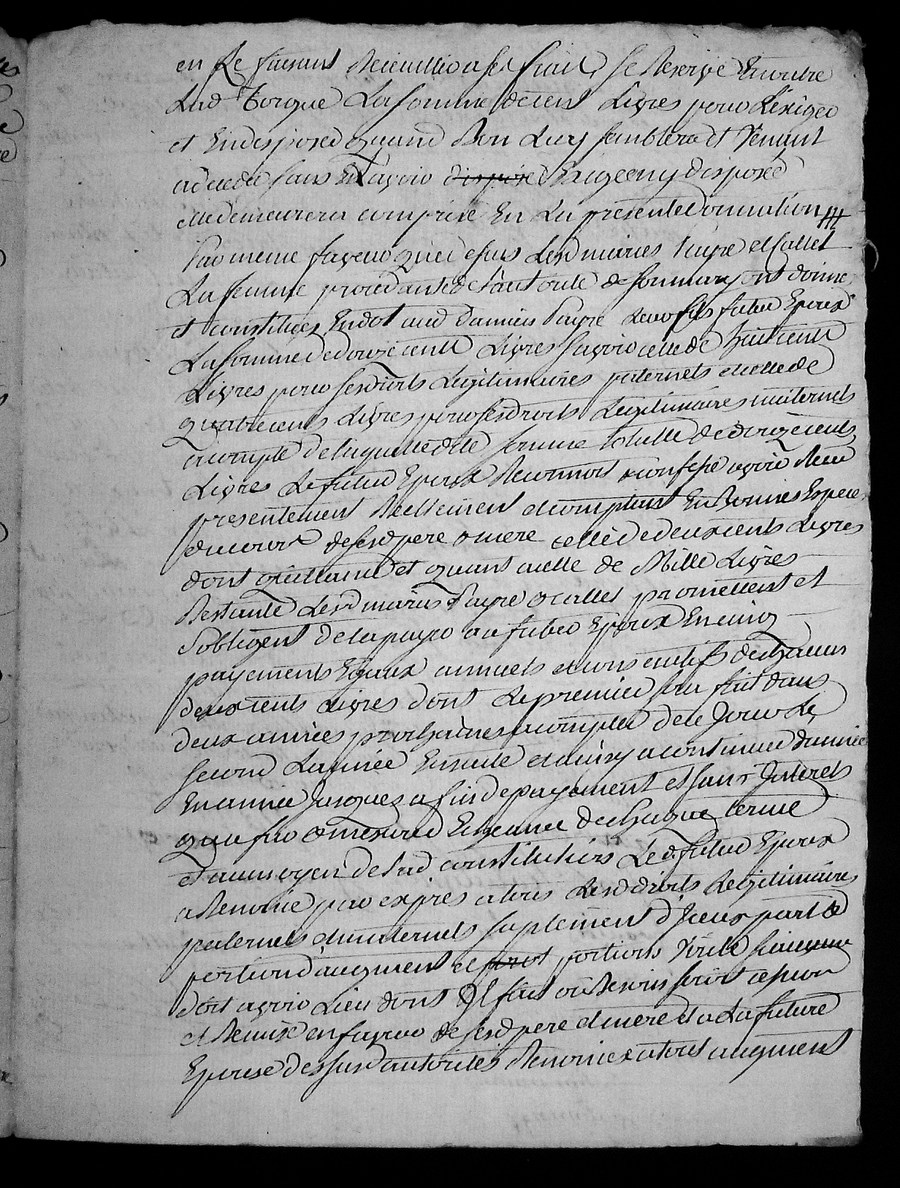 en le faisant recueillir a ses frais, se Reserve En outre
Lad Torque La somme de cent Livres pour L'exiger
et En disposer quand Bon Luy semblera et Venant
a deceder sans En avoir dispose disposé
elle demeurera comprise En La presente Donnation
Par meme faveur que dessus Lesd maries Payre et Callet
La femme procedante de L'autorité de son mary ont donné
et constitué En dot aud Damien Payre leur fils futur Epoux
La somme de douze cents Livres sçavoir celle de huit cents
Livres pour ses droits Legitimaires paternels et celle de
quatre cents Livres pour ses droits Legitimaires maternels
a compte de laquelle dite somme totalle de douze cents
Livres Le futur Epoux Reconnoit & confesse avoir Receu
presentement Reellement et comptant En Bonnes Especes
de cours de sesd pere & mere celle de deux cents Livres
dont quittance et quant a celle de Mille Livres
Restante Lesd maries Payre & Callet promettent et
s'obligent de la payer au futur Epoux En cinq
payements Egaux annuels et consecutifs de chacun
deux cents Livres dont Le premier sera fait dans
deux années prochaines a compter de ce Jour Le
second L'année Ensuite et ainsy a continuer d'année
En année Jusques a fin de payement et sans Interets
qu'a fur & mesure Echeance de chaque terme
et au moyen de lad constitution Led futur Epoux
a Renoncé par exprès a tous Lesd droits Legitimaires
paternels et maternels suplement d'Jceux part &
portion d'augment et portions Virile
doit avoir Lieu dont Il fait
et Remise en faveur de sesd pere et mere et a La future
Epouse dessusd autorités Renoncé a tout augment